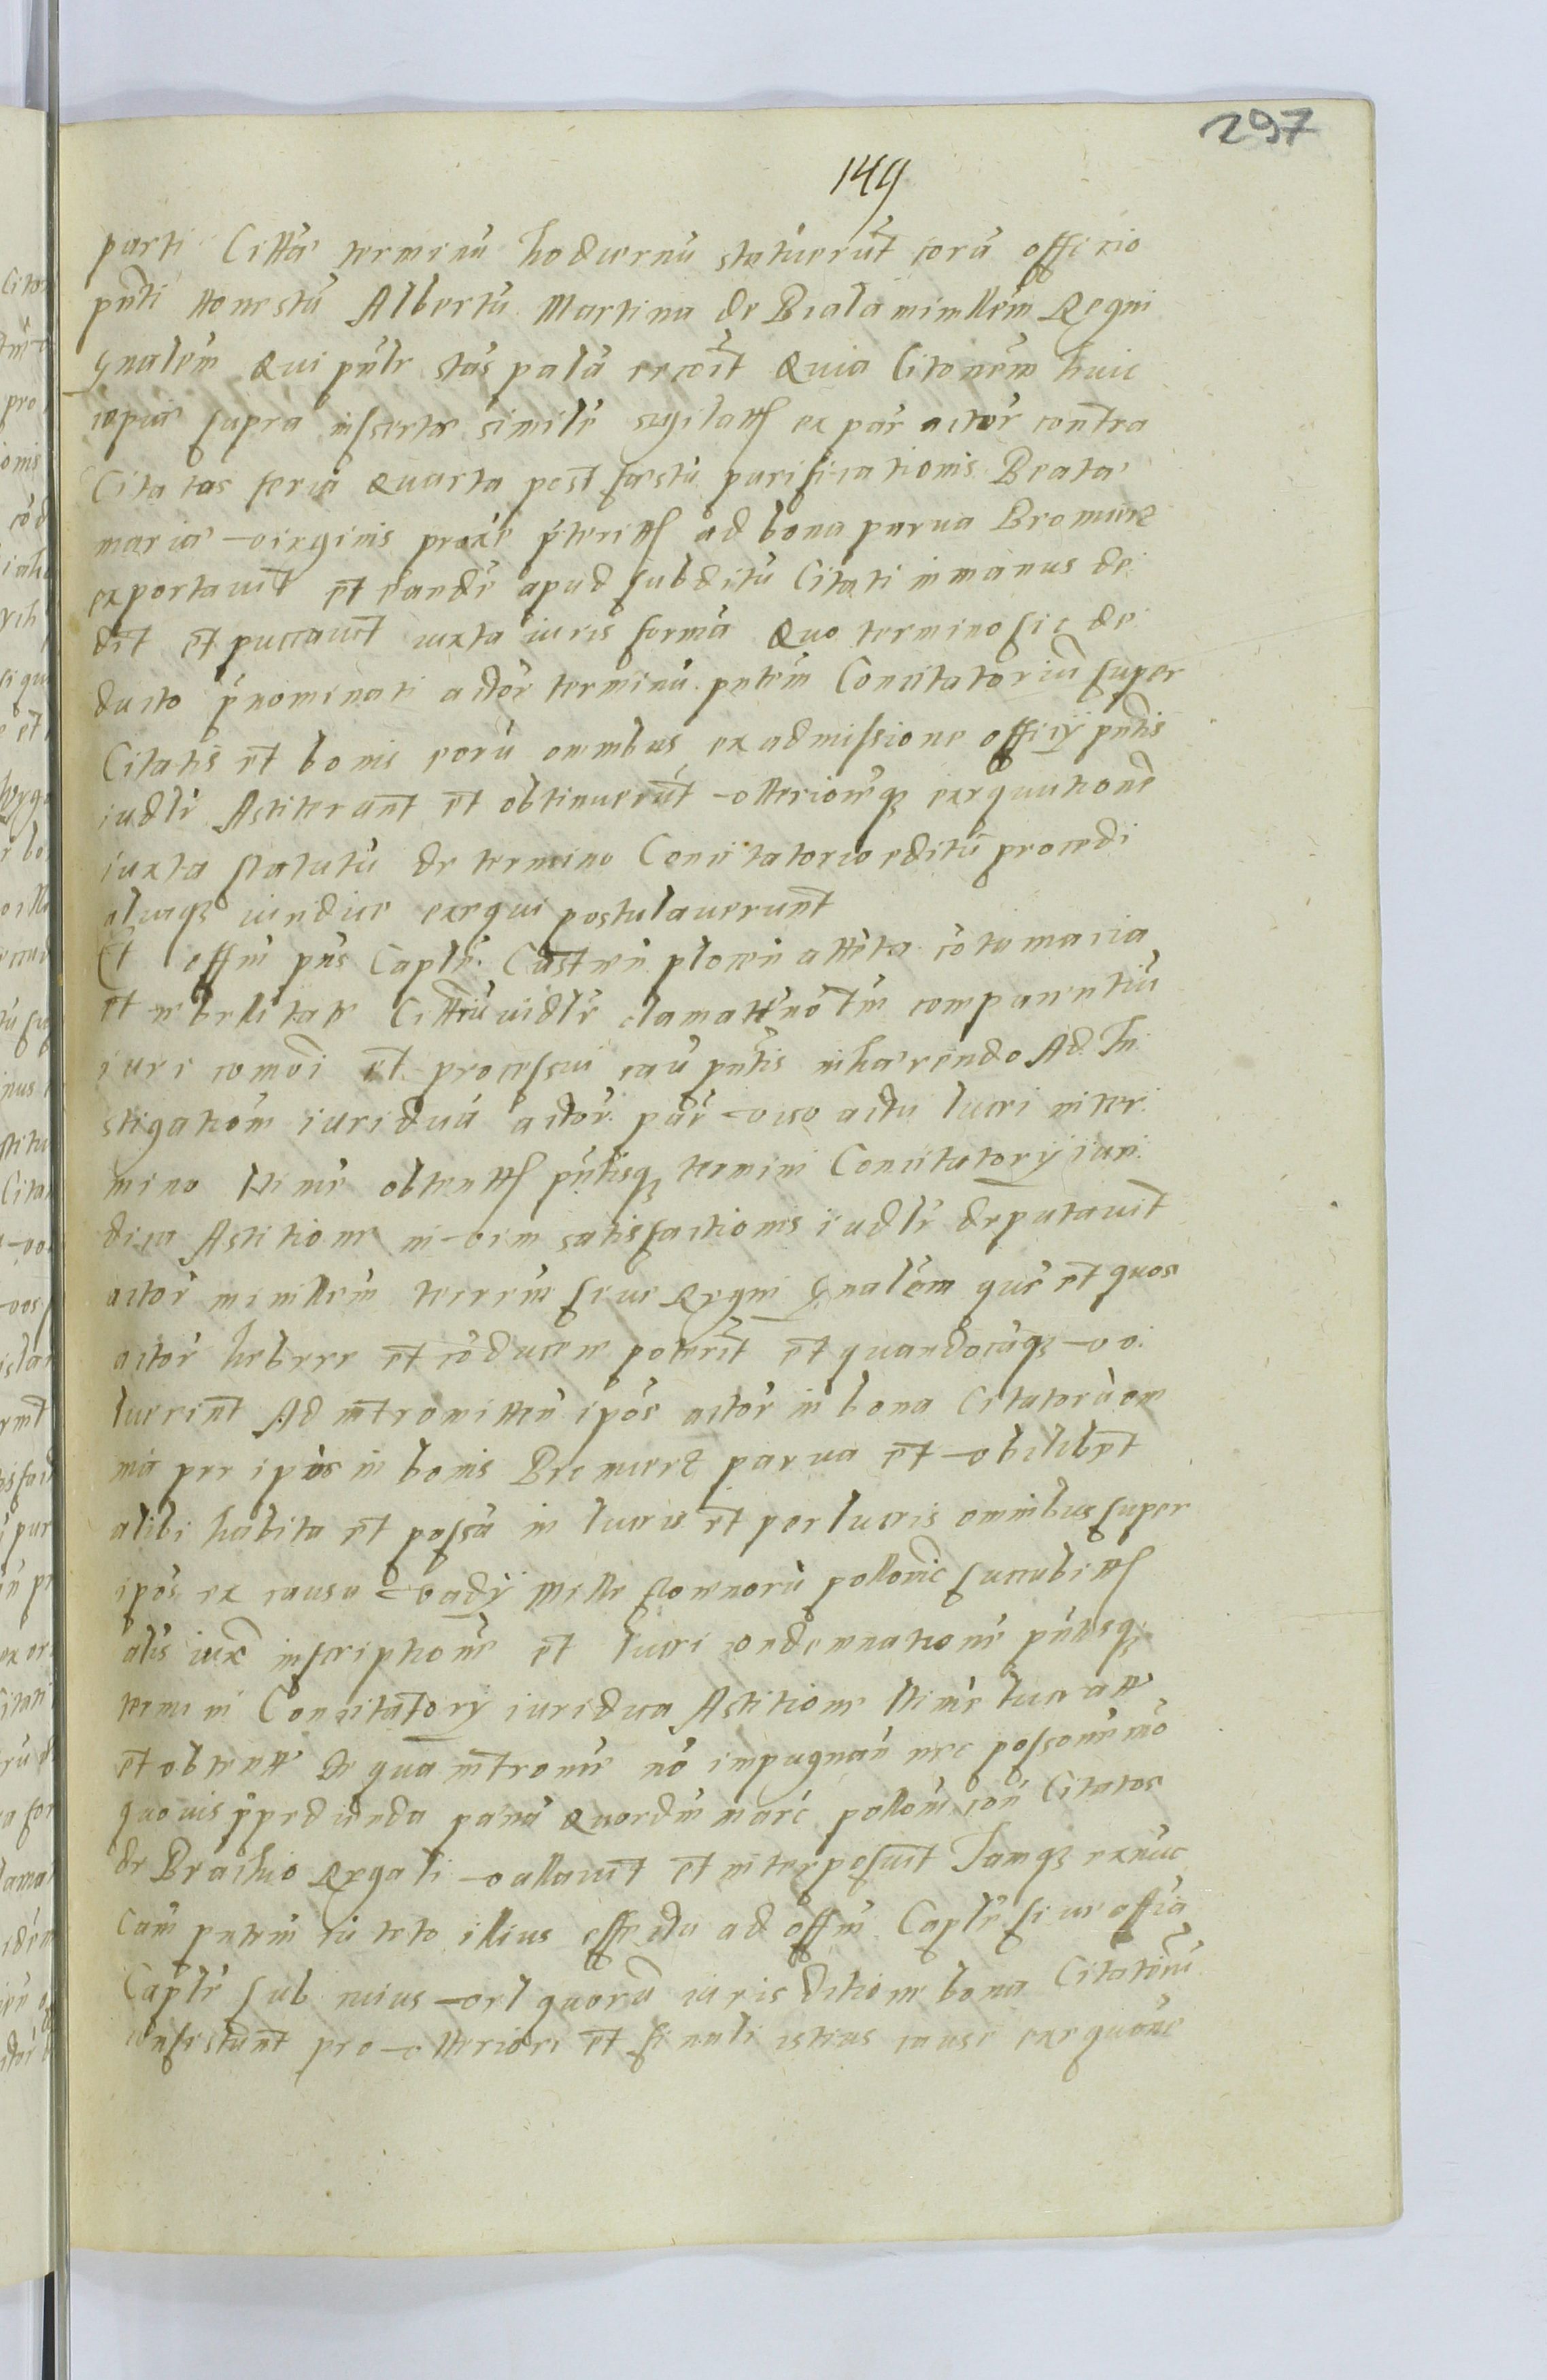 297
149
parti Citta terminũ hodiernũ statuerũt corã officio
pñti Honestũ Albertũ Martina de Biala minllem Regni
gnalem Qui pñlr stãs palã recoĩt Quia Citonem huic
copiæ supra insertæ simile sigilatt ex par actor contra
Citatos feria Quarta post festũ purificationis Beatæ
mariæ virginis proxe pteritt ad bona parua Bromierz
exportauit et eandẽ apud subditũ Citati in manus de
dit et putauit iuxta iuris formã Quo termino sic de
ducto pnominati actor terminũ pntem Concitatoriũ super
Citatis et bonis eorũ omnibus ex admissione officÿ pntis
iudlr Astiterunt et obtinuerũt vlterioreqz exequutionẽ
iuxta statutũ de termino Concitatorio editũ procedi
aliaqz iuridice exequi postulauerunt
Et offm pñs Caplẽ Castreñ ploceñ attẽta cõtumacia
et rebellitate Cittũ iudlr clamatt nõ tm comparentiũ
iuri comoĩ et processui cau pntis inhærendo Ad In
stigationẽ iuridicã actor par viso actu lucri in ter
mino  obtentt pntisqz termini Concitatorÿ iuri
dica Astitione in vim satisfactionis iudlr deputauit
actor minllem terrem siue Regni Gnalem quẽ et quos
actor habere et cõducere poterĩt et quandocũqz vo
luerint Ad intromitteñ ipos actor in bona Citatorũ om
nia per ipos in bonis Bromierz parua et vbilibet
alibi habita et possã in lucris et per lucris omnibus super
ipos ex causa vadÿ Mille florenorũ pollonic succubitt
alis iux inscriptionẽ et lucri condemnationẽ pntisqz
termini Concitatorÿ iuridica Astitione  lucratt
et obtentt De qua intronẽ nõ impugnañ nec possonẽ mõ
quouis ipedienda pænã Quordm marc polloñ con Citatos
de Brachio Regali vallauit et interposuit Iamqz exnũc
Cam pntem cũ toto illius effectu ad offm Caplẽ siue officia
Caplẽ sub cuius vel quorũ iurisditione bona Citatorũ
consistunt pro vlteriori et finali istius cause exequone